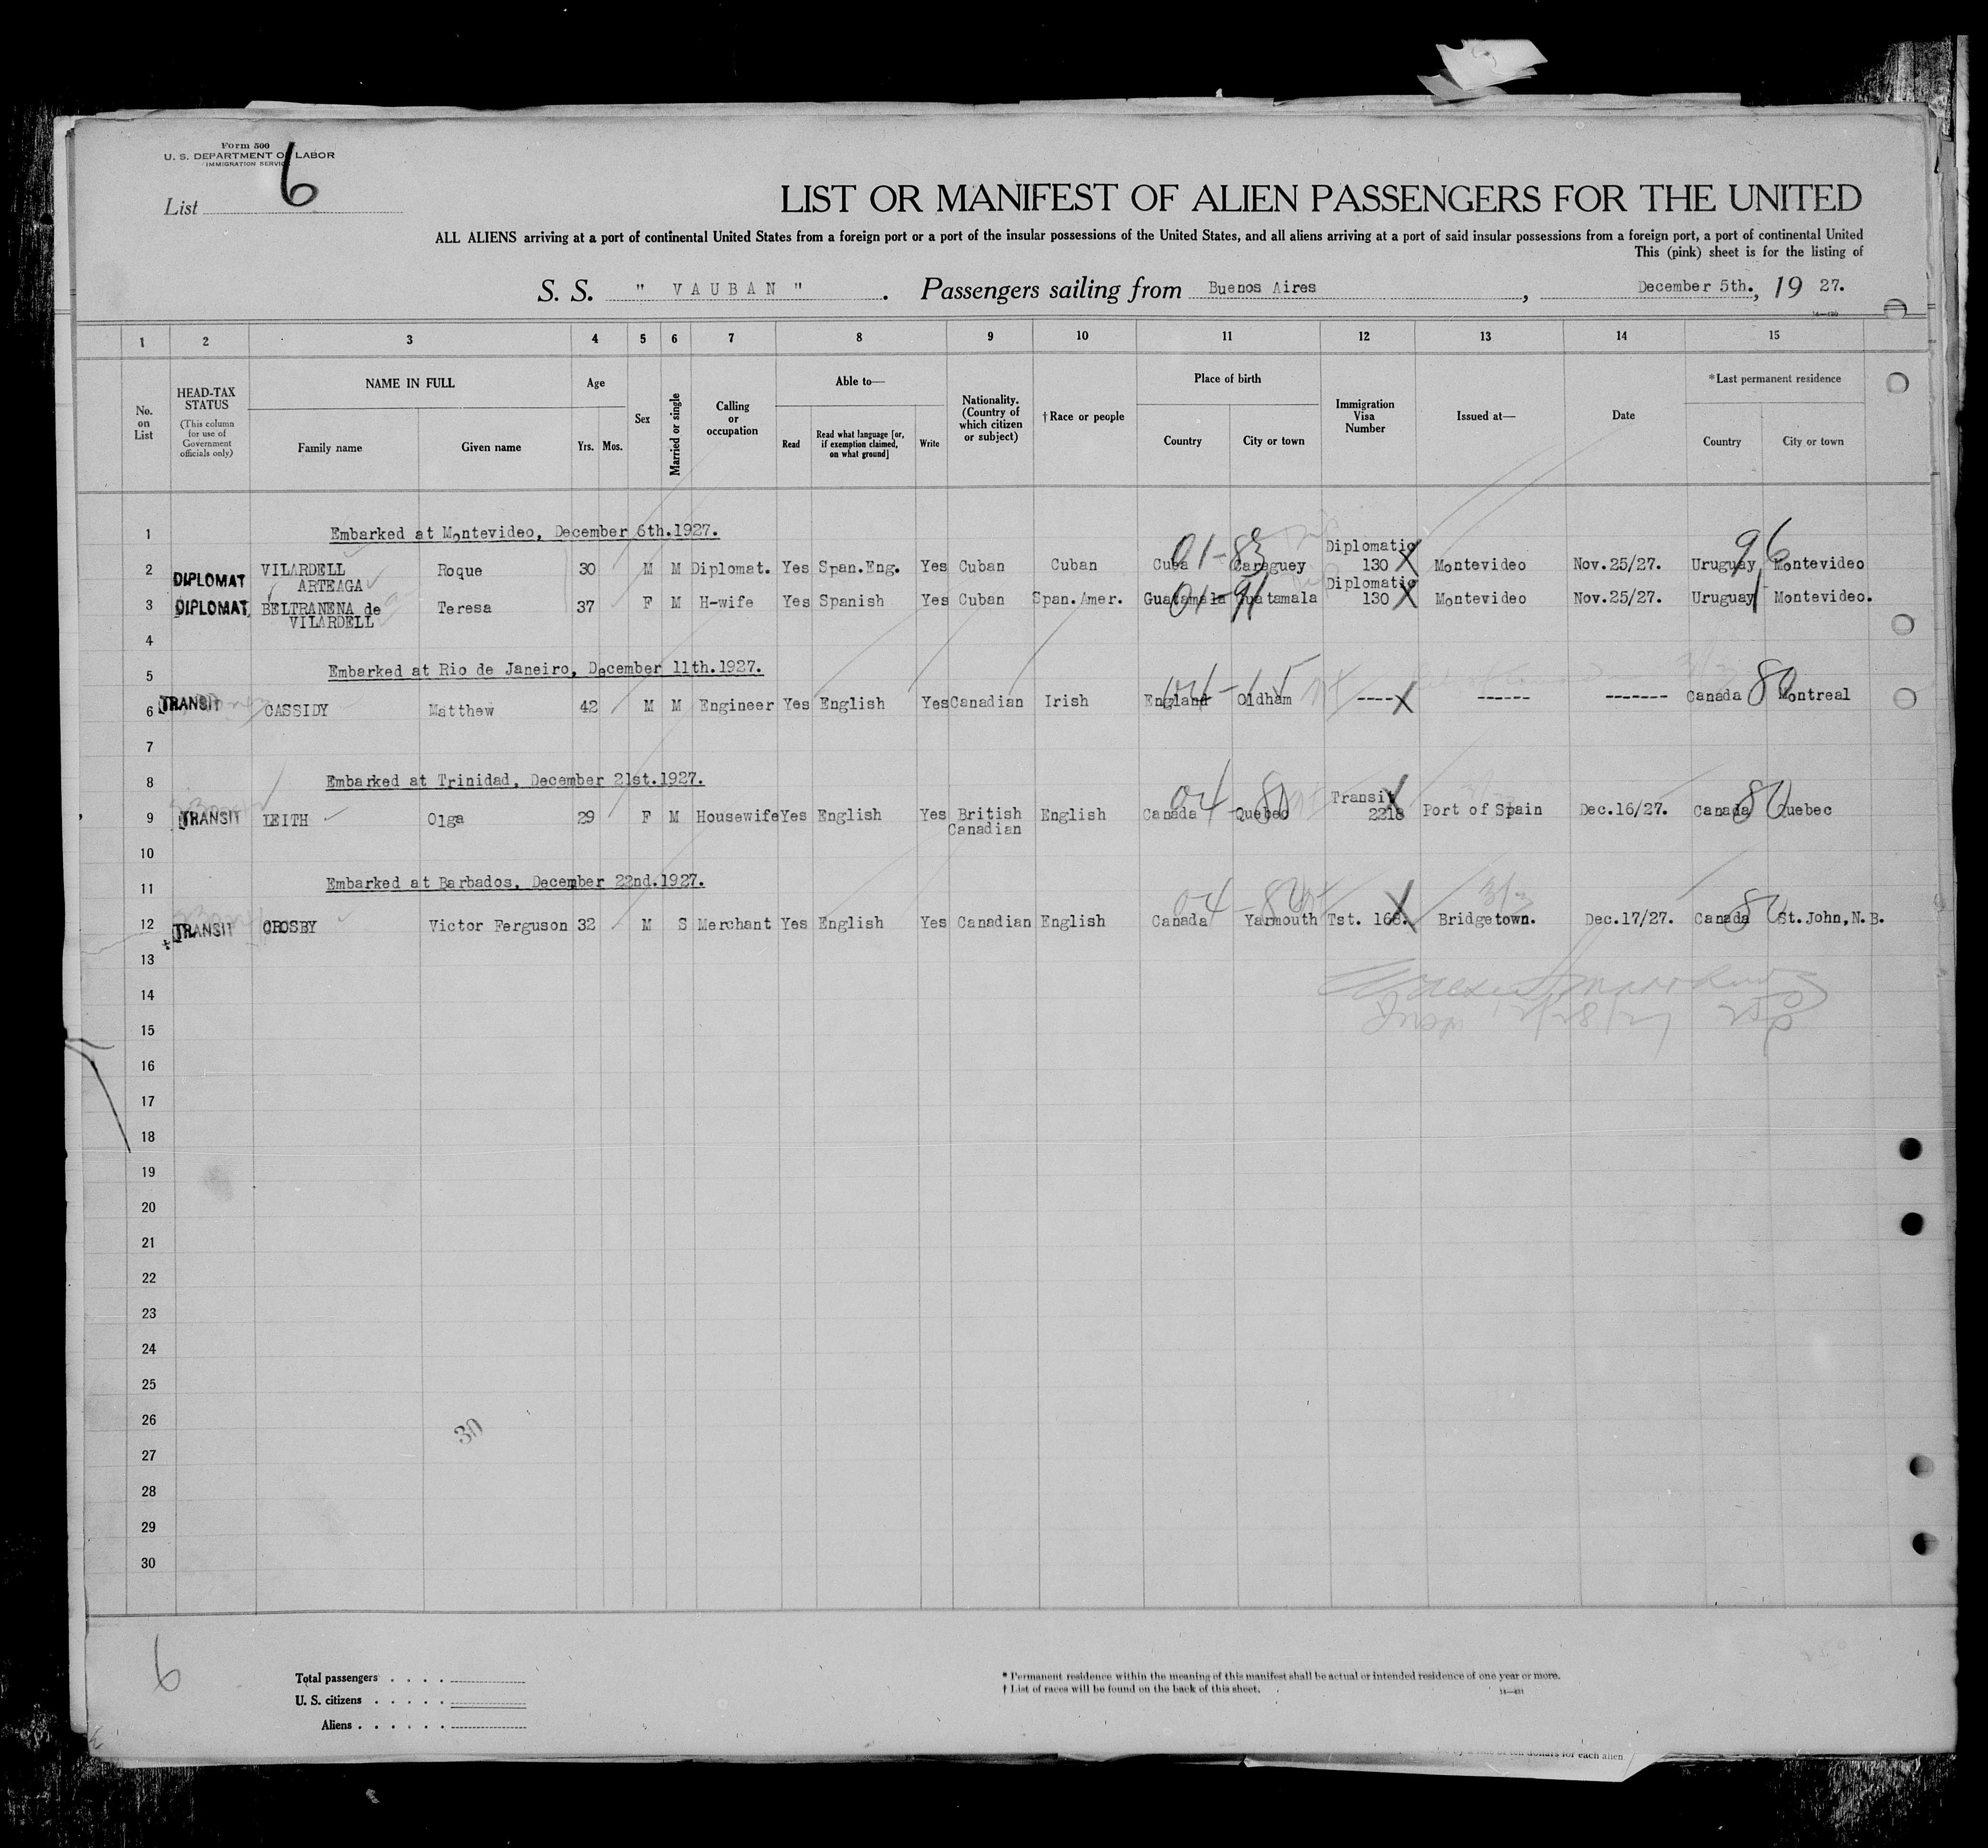 Form 500
U. S. DEPARTMENT OF LABOR
IMMIGRATION SERVICE
List 6
LIST OR MANIFEST OF ALIEN PASSENGERS FOR THE UNITED
ALL ALIENS arriving at a port of continental United States from a foreign port or a port of the insular possessions of the United States, and all aliens arriving at a port of said insular possessions from a foreign port, a port of continental United
This (pink) sheet is for the listing of
S. S. " VAUBAN " . Passengers sailing from Buenos Aires , December 5th., 19 27.
1 2 3 4 5 6 7 8 9 10 11 12 13 14 15
No. on List
HEAD-TAX STATUS
(This column for use of Government officials only)
NAME IN FULL
Family name Given name
Age
Yrs. Mos.
Sex
Married or single
Calling or occupation
Able to—
Read Read what language [or, if exemption claimed, on what ground] Write
Nationality. (Country of which citizen or subject)
†Race or people
Place of birth
Country City or town
Immigration Visa Number
Issued at—
Date
*Last permanent residence
Country City or town
1 Embarked at Montevideo, December 6th.1927.
2 DIPLOMAT VILARDELL ARTEAGA Roque 30 M M Diplomat. Yes Span.Eng. Yes Cuban Cuban Cuba 01-83 Caraguey Diplomatic 130 X Montevideo Nov.25/27. Uruguay 96 Montevideo
3 DIPLOMAT BELTRANENA de VILARDELL Teresa 37 F M H-wife Yes Spanish Yes Cuban Span.Amer. Guatamala 01-91 Guatamala Diplomatic 130 X Montevideo Nov.25/27. Uruguay Montevideo.
4
5 Embarked at Rio de Janeiro, December 11th.1927.
6 TRANSIT CASSIDY Matthew 42 M M Engineer Yes English Yes Canadian Irish England 04-15 Oldham ---- X ------ ------- Canada 80 Montreal
7
8 Embarked at Trinidad, December 21st.1927.
9 TRANSIT LEITH Olga 29 F M Housewife Yes English Yes British Canadian English Canada 04-80 Quebec Transit 2218 X Port of Spain Dec.16/27. Canada 80 Quebec
10
11 Embarked at Barbados, December 22nd.1927.
12 TRANSIT CROSBY Victor Ferguson 32 M S Merchant Yes English Yes Canadian English Canada 04-80 Yarmouth Tst. 168. X Bridgetown. Dec.17/27. Canada 80 St.John,N.B.
13
14
15 12/28/27
16
17
18
19
20
21
22
23
24
25
26
30
27
28
29
30
6
Total passengers
U. S. citizens
Aliens
* Permanent residence within the meaning of this manifest shall be actual or intended residence of one year or more.
† List of races will be found on the back of this sheet.
for each alien